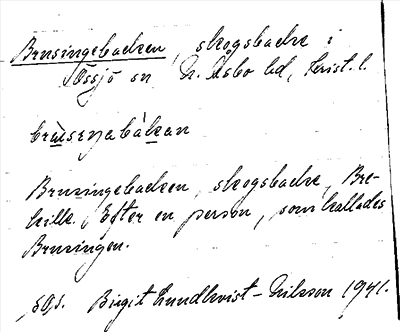 Brusingebacken, skogsbacke i
Tossjö sn N. Åsbo hd, Krist. l.
Brusingebacken, skogsbacke, Bre-
kille. Efter en person, som kallades
Brusingen.
Birgit Lundkvist - Nilsson 1941.